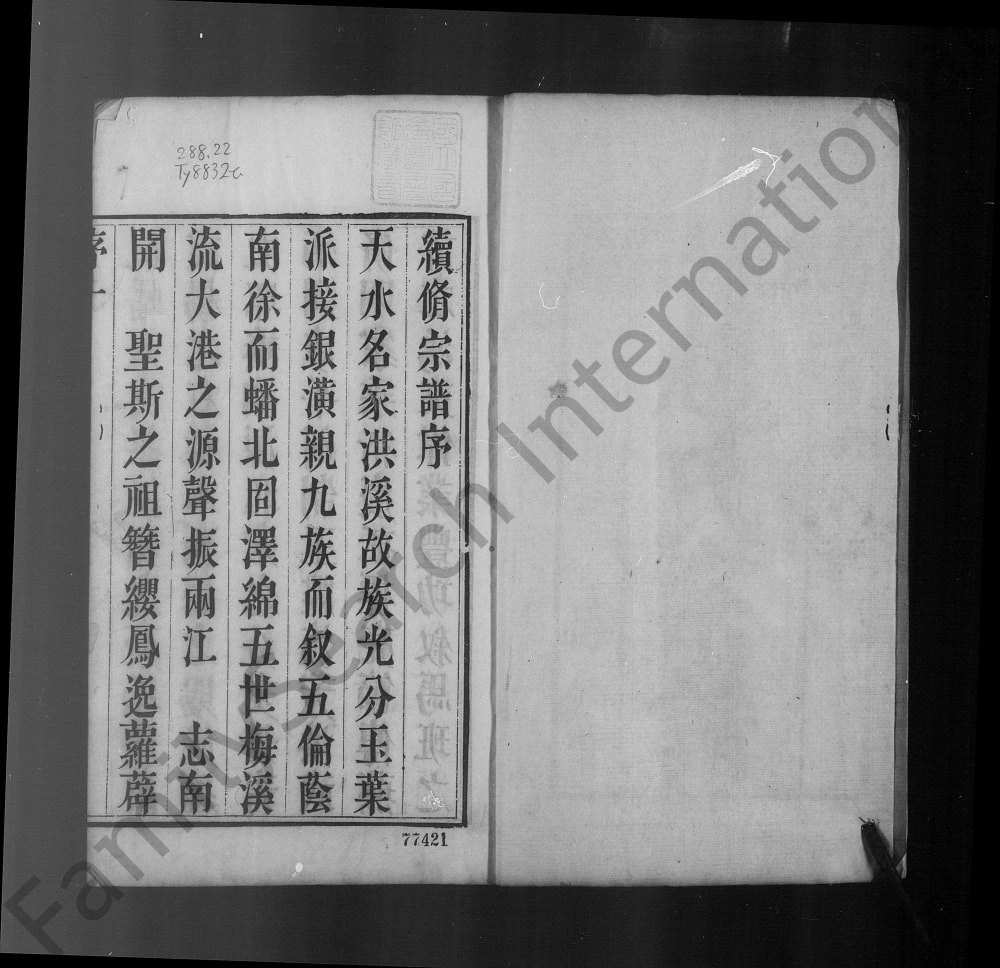 續脩宗譜序
天水名家洪溪故族光分玉葉
派接銀潢親九族而叙五倫蔭
南徐而蟠北固澤綿五世梅溪
流大港之源聲振兩江 志南
開 聖斯之祖簪纓鳳逸蘿薜
序 一
288.22
Ty8832-G
77421
FamilySearch International